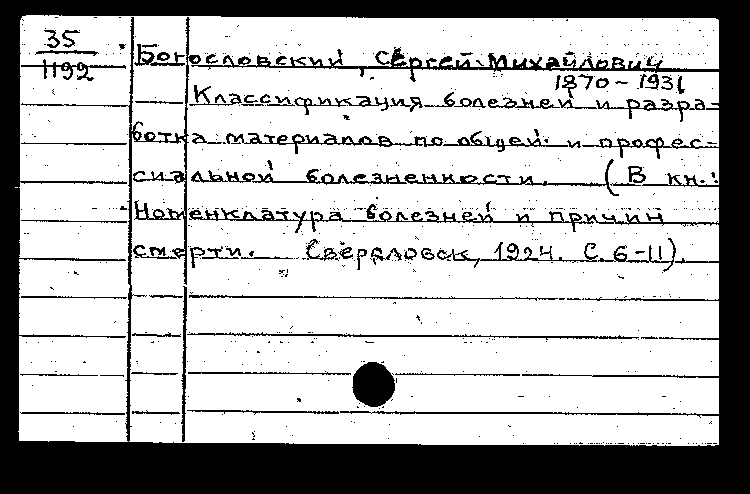 35
1192
Богословский, Сергей Михайлович
1870-1931
Классификация болезней и разра-
ботка материалов по общей и профес-
сиальной болезненности. (В кн.:
Номенклатура болезней и причин
смерти. Свердловск, 1924. С. 6-11).